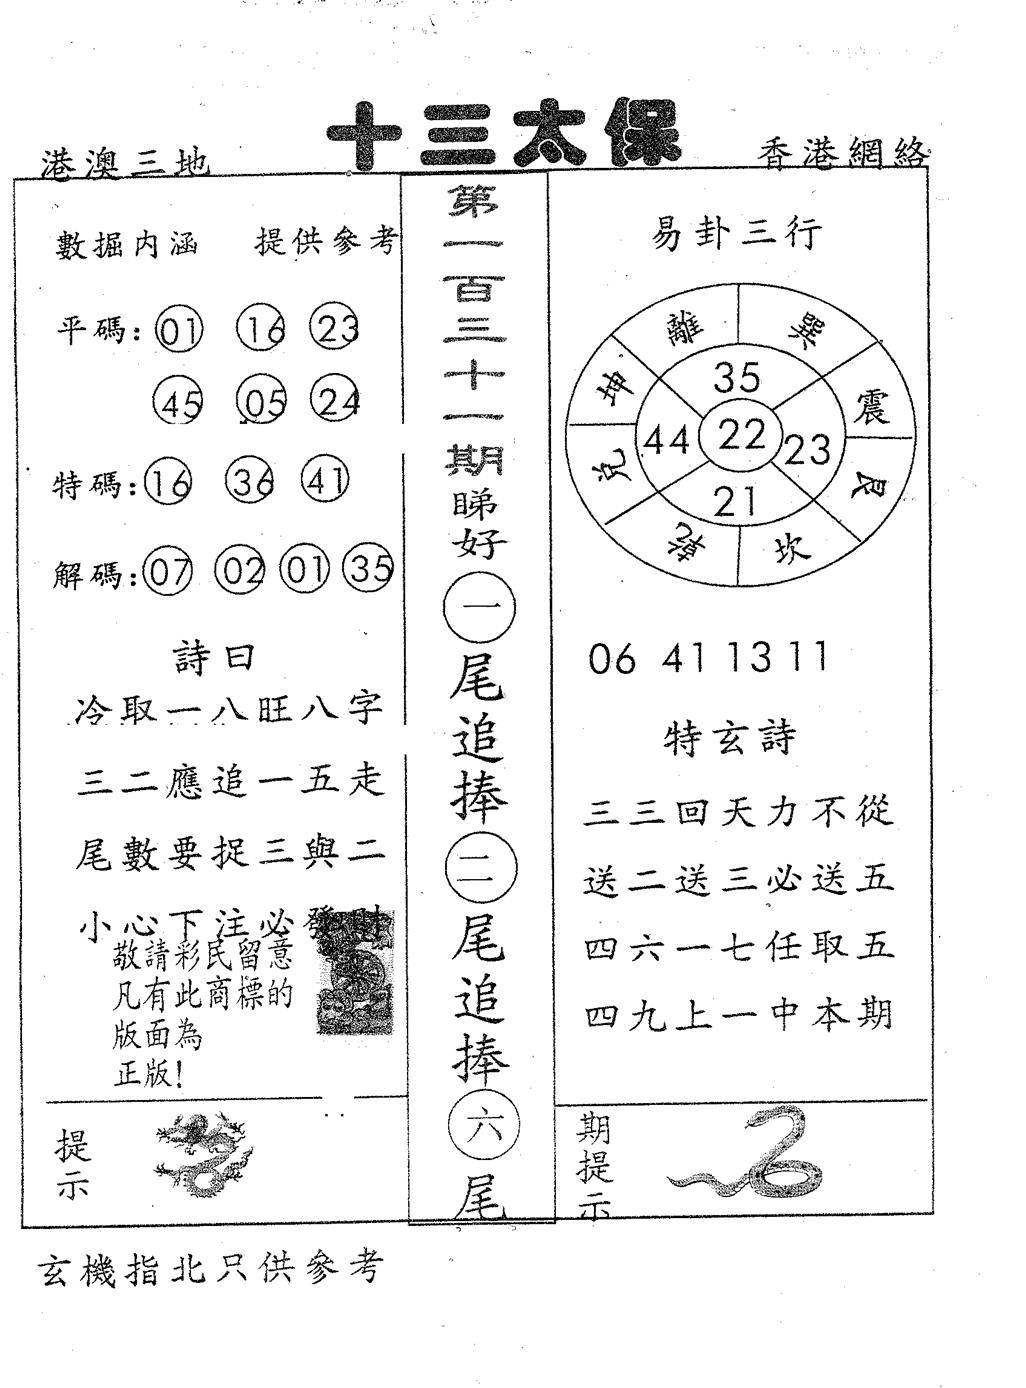 十三太保
港澳三地
香港網絡
數掘內涵 提供參考
平碼: 01 16 23
45 05 24
特碼: 16 36 41
解碼: 07 02 01 35
詩曰
冷取一八旺八字
三二應追一五走
尾數要捉三與二
小心下注必發財
敬請彩民留意
凡有此商標的
版面為
正版!
提示
第一百三十一期睇好一尾追捧二尾追捧六尾
易卦三行
離 巽
坤 震
兌 艮
乾 坎
35
44 22 23
21
06 41 13 11
特玄詩
三三回天力不從
送二送三必送五
四六一七任取五
四九上一中本期
期提示
玄機指北只供參考